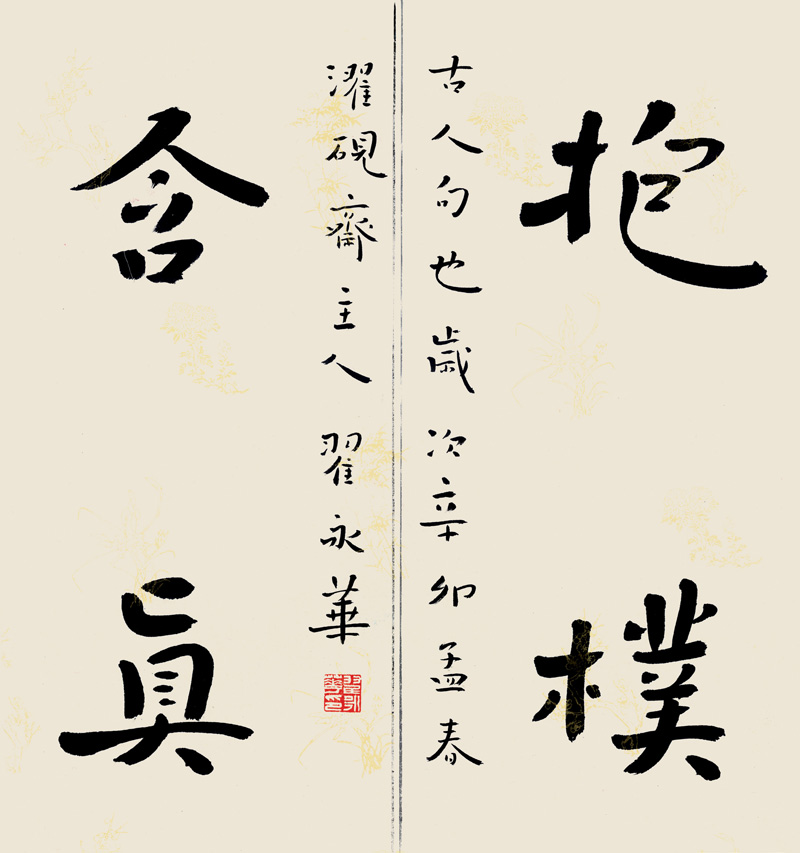 抱樸
古人句也歲次辛卯孟春
含真
濯硯齋主人 翟永華